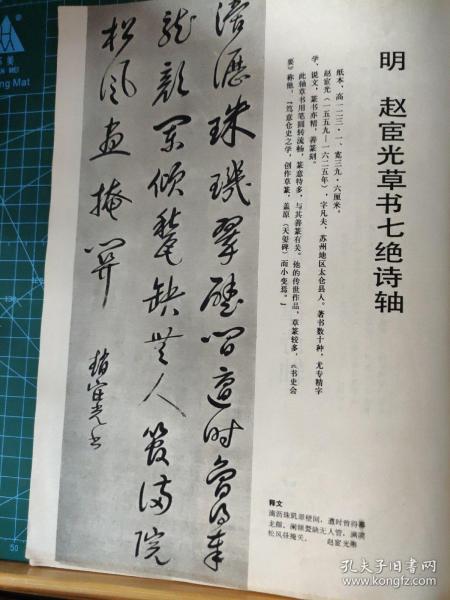 明 赵宦光草书七绝诗轴
纸本、高一二三·一、宽三九·六厘米。
赵宦光（一五五九—一六二五年），字凡夫，苏州地区太仓县人。著书数十种，尤专精字
学、说文，篆书亦精，善篆刻。
此轴草书用笔圆转流畅，篆意特多，与其善篆有关。他的传世作品，草篆较多，书史会
要》称他，「笃意仓史之学，创作草篆，盖原《天玺碑》而小变焉。」
滴瀝珠璣翠壁間遭時曾得奉
龍顏闌傾甃缺無人管滿院
松風晝掩關
趙宦光書
释文
滴沥珠玑翠壁间，遭时曾得奉
龙颜，阑倾甃缺无人管，满院
松风昼掩关。 赵宦光书
ng Mat
50
孔夫子旧书网